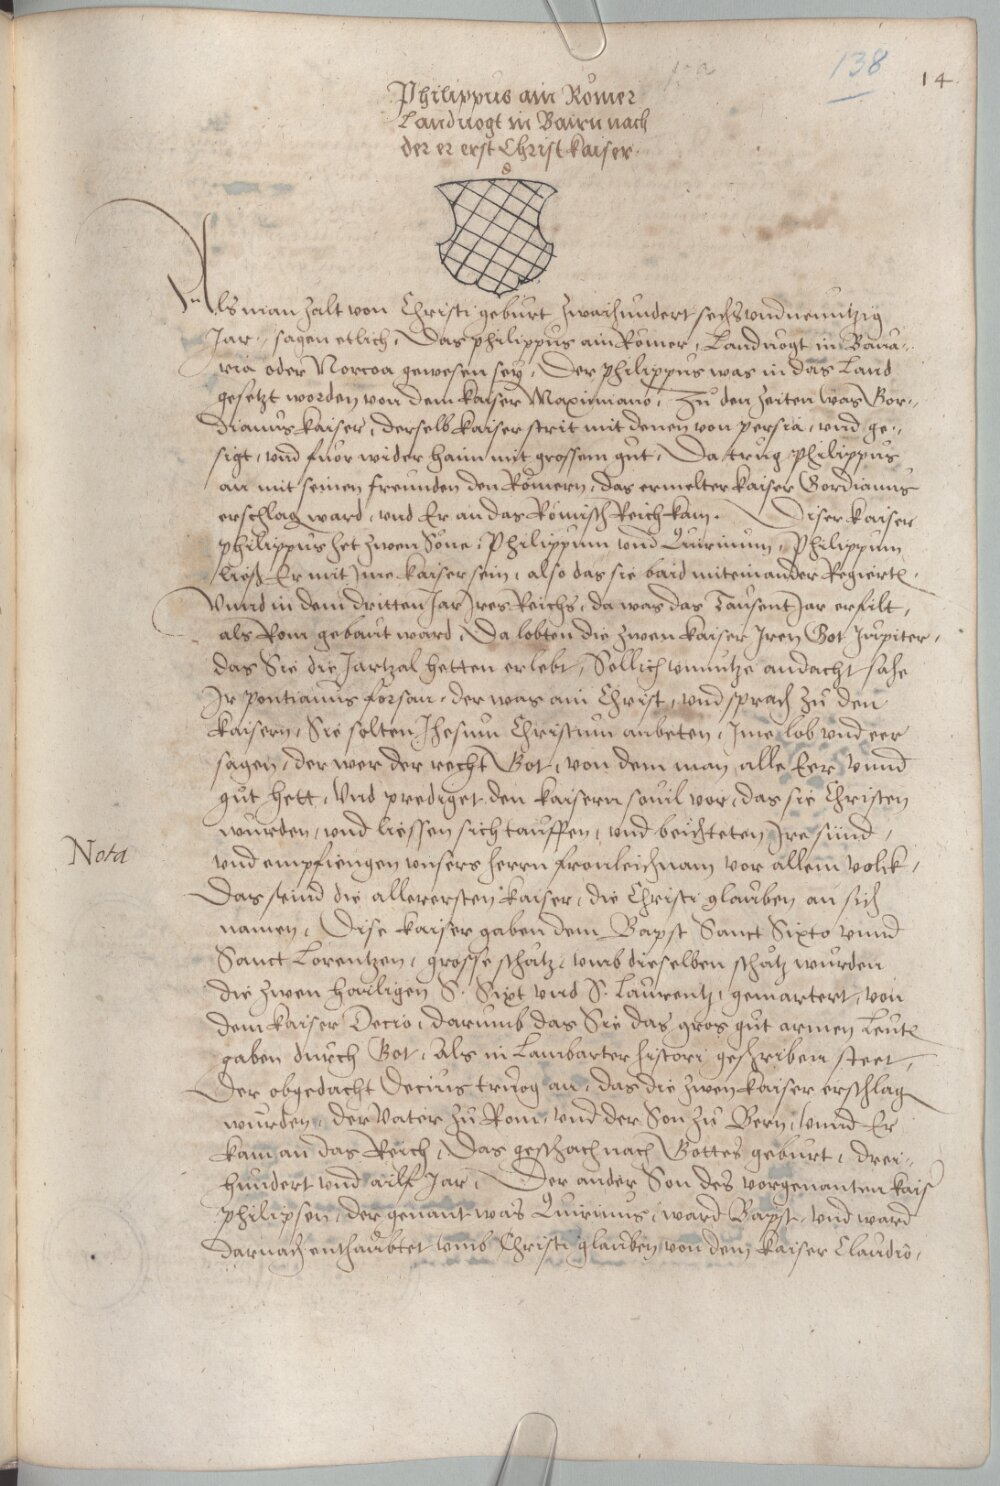 138
14
Philippus ain Römer
Landuogt in Bairn nach
der er erst Christ kaiser.
Als man zalt von Christi geburt zwaihundert sechs vnd neuntzig
Jar, sagen etlich, Das philippus ain Römer, Landuogt in Baua-
ria oder Norcoa gewesen sey, Der philippus was in das Land
gesetzt worden von dem kaiser Maximiano, Zu den zeiten was Gor-
dianus kaiser, derselb kaiser strit mit denen von persia, vnd ge-
sigt, vnd fuor wider haim mit grossem gut, Da trug philippus
an mit seinen freunden den Römern, das ermelter kaiser Gordianus
erschlag ward, vnd Er an das Römisch Reich kam. Diser kaiser
philippus het zwen Söne, Philippum vnd Quirinum, Philippum
ließ Er mit Jme kaiser sein, also das sie baid miteinander Regierte,
Vnnd in dem dritten Jar Jres Reichs, da was das Tausent Jar erfilt,
als Rom gebaut ward, Da lobten die zwen kaiser Jren Got Jupiter,
das Sie die Jartzal hetten erlebt, Sollich vnnutze andacht sahe
Jr pontianus forsan, der was ain Christ, vnd sprach zu den
kaisern, Sie solten Jhesum Christum anbeten, Jme lob vnd eer
sagen, der wer der recht Got, von dem man alle Eer vnnd
gut hett, Vnd prediget den kaisern souil vor, das sie Christen
wurden, vnd liessen sich tauffen, vnd beichteten Jre sünd,
Nota
vnd empfiengen vnsers herrn fronleichnam vor allem volck,
Das seind die allerersten kaiser, die Christi glauben an sich
namen, Dise kaiser gaben dem Bapst Sanct Sixto vnnd
Sanct Lorentzen, grosse schätz, vmb dieselben schätz wurden
die zwen hailigen S. Sixt vnd S. Laurentz, gemartert, von
dem kaiser Decio, darumb das Sie das gros gut armen Leute
gaben durch Got, Als in Lambarter histori geschriben steet,
Der obgedacht Decius truog an, das die zwen kaiser erschlag
wurden, der Vater zu Rom, vnd der Son zu Bern, vnnd Er
kam an das Reich, Das geschach nach Gottes geburt, drei-
hundert vnd ailf Jar, Der ander Son des vorgenanten kais
philipsen, der genant was Quirinus, ward Bapst, vnd ward
darnach enthaubtet vmb Christi glauben von dem kaiser Claudio,